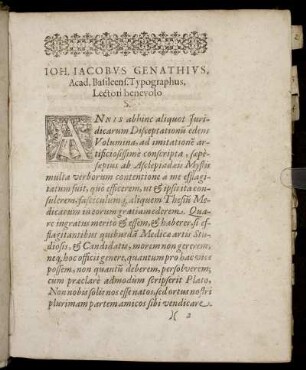 IOH. IACOBVS GENATHIVS,
Acad. Basileens. Typographus,
Lectori benevolo
S.
ANNIS abhinc aliquot Juri-
dicarum Disceptationũ edens
Volumina, ad imitationẽ ar-
tificiosissimè conscripta, sæpè-
sepius ab Asclepiadæis Mystis
multa verborum contentione à me efflagi-
tatum fuit, quò efficerem, ut & ipsi ita con-
sulerem, fasciculumq́; aliquem Thesiũ Me-
dicarum in eorum gratiam ederem. Qua-
re ingratus meritò & essem, & haberer, si ef-
flagitantibus quibusdã Medicæ artis Stu-
diosis, & Candidatis, morem non gererem,
neq, hoc officij genere, quantum pro hac vice
possem, non quantũ deberem, persolverem,
cum præclarè admodum scripserit Plato.
Non nobis solis nos esse natos, sed ortus nostri
plurimam partem amicos sibi vendicare.
)( 2